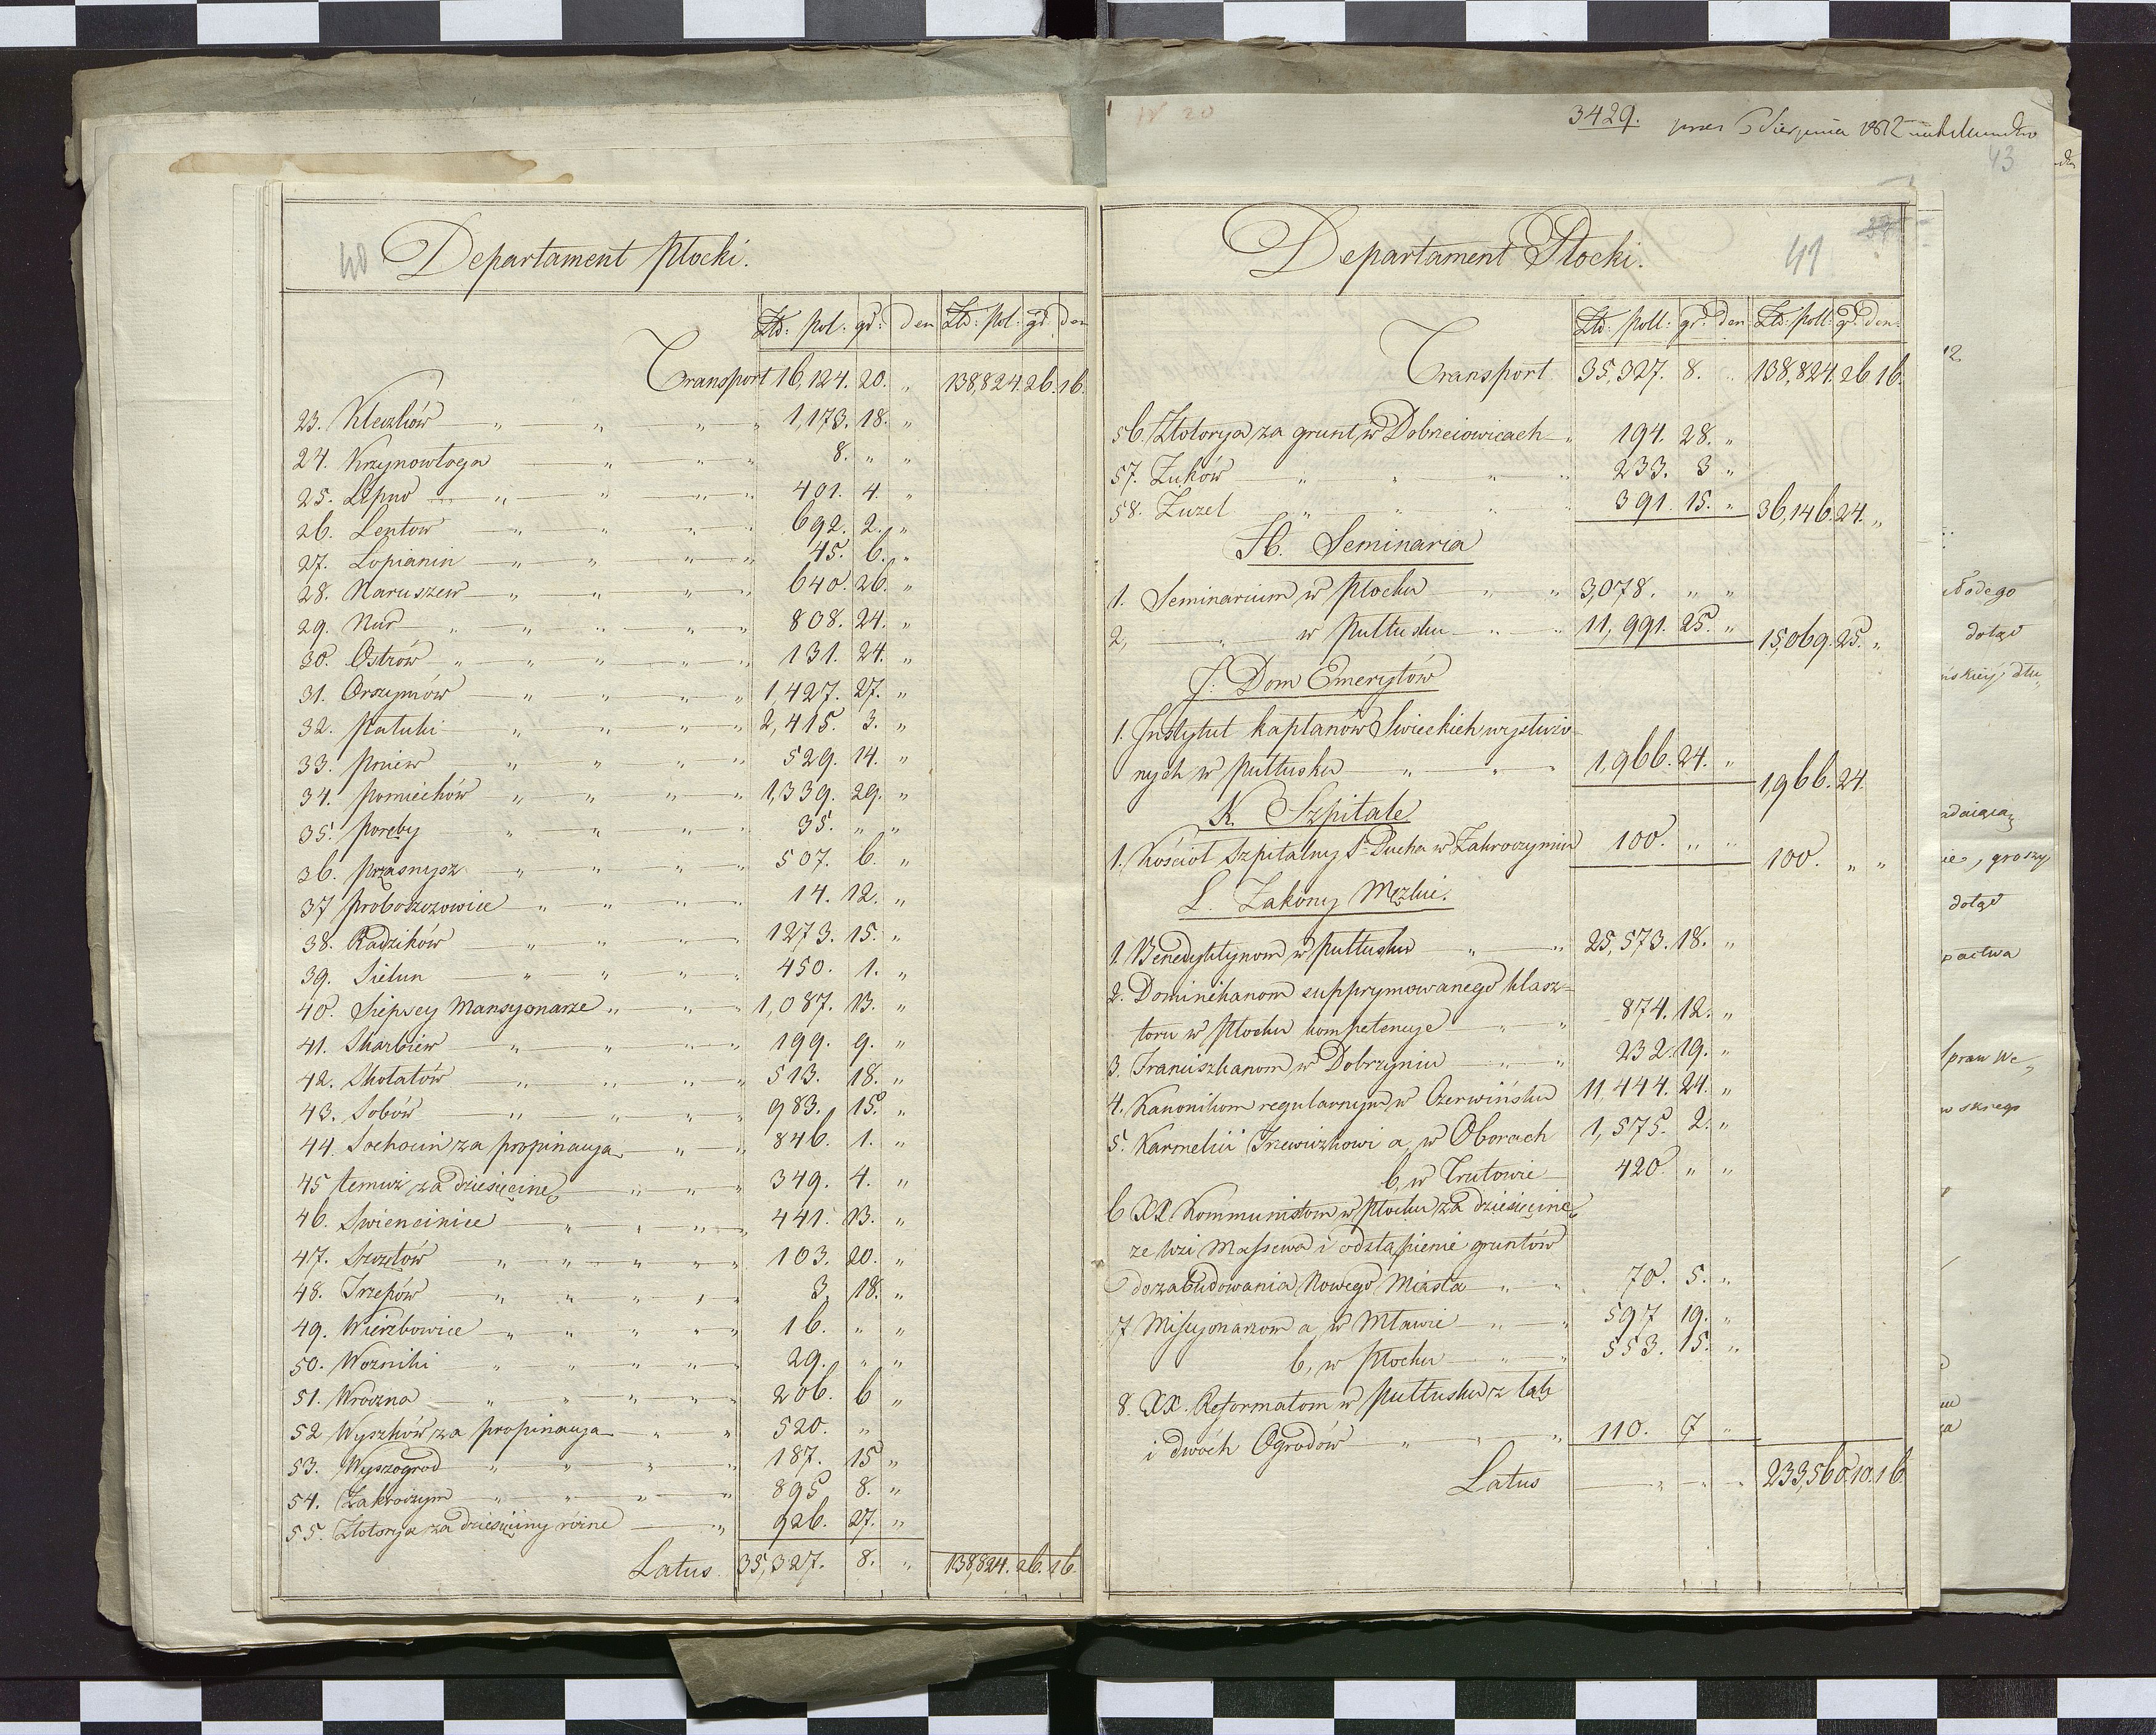 40 Departament Płocki.
Złd: pol: gr: den Złd: pol: gr: den
Transport 16,124. 20. „ 138,824. 26. 16.
23. Kleczków „ „ „ „ 1,173. 18. „
24. Krzynowłoga „ „ „ 8. „ „
25. Lipno „ „ „ „ 401. 4. „
26. Lentow „ „ „ „ 692. 2. „
27. Łopianin „ „ „ „ 45. 6. „
28. Naruszew „ „ „ „ 640. 26. „
29. Nur „ „ „ „ „ 808. 24. „
30. Ostrów „ „ „ „ „ 131. 24. „
31. Orszymów „ „ „ „ 1427. 27. „
32. Pałuki „ „ „ „ 2,415. 3. „
33. Pniew „ „ „ „ 529. 14. „
34. Pomiechów „ „ „ „ 1,339. 29. „
35. Poręby „ „ „ „ 35. „ „
36. Przasnysz „ „ „ „ 507. 6. „
37 Proboszczowice „ „ „ „ 14. 12. „
38. Radzików „ „ „ „ 1273. 15. „
39. Sielun „ „ „ „ 450. 1. „
40. Siepscy Mansyonarze „ „ „ 1,087. 13. „
41. Skarbiew „ „ „ „ 199. 9. „
42. Skołatów „ „ „ „ 513. 18. „
43. Sobów „ „ „ „ 983. 15. „
44. Sochocin za propinacyą „ „ 846. 1. „
45 temuż za dziesięcinę „ „ „ 349. 4. „
46. Swiencinice „ „ „ „ 441. 13. „
47. Szczetów „ „ „ „ „ 103. 20. „
48. Trzepów „ „ „ „ „ 3. 18. „
49. Wierzbowice „ „ „ „ „ 16. „ „
50. Wozniki „ „ „ „ „ 29. „ „
51. Wroczna „ „ „ „ „ 206. 6 „
52 Wyszków za propinacyą „ „ 520. „
53. Wyszogrod „ „ „ „ 187. 15 „
54. Zakroczym „ „ „ „ 895 8. „
55. Złotorya za dziesięciny różne „ 926. 27. „
Latus. 35,327. 8. „ 138,824. 26. 16
3429.
43
Departament Płocki. 41
Złd: poll: gr: den Złd: poll: gr: den:
Transport 35,327. 8. „ 138,824. 26 16.
56. Złotorya za grunt w Dobrzeiowicach „ 194. 28. „
57. Zuków „ „ „ „ 233. 3 „
58. Zuzel „ „ „ „ 391. 15. „ 36,146. 24. „
H. Seminaria
1. Seminarium w Płocku „ „ 3,078. „ „
2, „ w Pułtusku „ „ 11,991. 25. „ 15,069. 25. „
J. Dom Emerytów
1. Instytut kapłanów Swieckich wysłużo-
nych w Pułtusku „ „ „ 1,966. 24. „ 1,966. 24.
K. Szpitale
1. Kościoł Szpitalny S. Ducha w Zakroczymiu 100. „ „ 100. „ „
L. Zakony Męzkie.
1. Benedyktynom w Pułtusku „ „ 25,573. 18. „
2. Dominikanom supprymowanego klasz-
toru w Płocku kompetencye „ „ 874. 12. „
3. Franciszkanom w Dobrzyniu „ „ 232. 19. „
4. Kanonikom regularnym w Czerwińsku 11,444. 24. „
5. Karmelici Trzewiczkowi a, w Oborach 1,575. 2. „
b, w Trutowie 420. „ „
6 XX. Kommunistom w Płocku za dziesięcinę
ze wsi Maszewa i odstąpienie gruntów
do zabudowania Nowego Miasta „ „ 70. 5. „
7 Missyonarzom a, w Mławie „ „ 597 19. „
b, w Płocku „ „ 553. 15. „
8. XX. Reformatom w Pułtusku z łąk
i dwóch Ogrodów „ „ „ 110. 7 „
Latus „ „ „ 233,560. 10. 16.
dotąd
groszy
dotąd